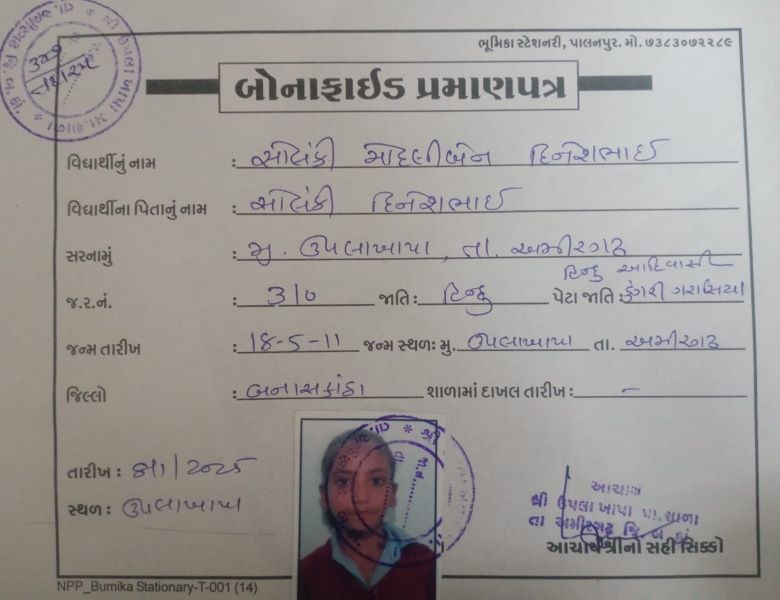 ભૂમિકા સ્ટેશનરી, પાલનપુર. મો. ૭૩૮૩૦૭૨૨૮૯
બોનાફાઇડ પ્રમાણપત્ર
વિદ્યાર્થીનું નામ : સોલંકી મોદલીબેન દિનેશભાઈ
વિદ્યાર્થીના પિતાનું નામ : સોલંકી દિનેશભાઈ
સરનામું : મુ. ઉપલાખાપા, તા. અમીરગઢ
હિન્દુ આદિવાસી
જ.ર.નં. : 310 જાતિ : હિન્દુ પેટા જાતિ : ડુંગરી ગરાસિયા
જન્મ તારીખ : 18-5-11 જન્મ સ્થળઃ મુ. ઉપલાખાપા તા. અમીરગઢ
જિલ્લો : બનાસકાંઠા શાળામાં દાખલ તારીખ : –
તારીખ : 2025
સ્થળ : ઉપલાખાપા
આચાર્ય
શ્રી ઉપલા ખાપા પ્રા.શાળા
તા અમીરગઢ જિ બ કાં
આચાર્યશ્રીનો સહી સિક્કો
NPP_Bumika Stationary-T-001 (14)